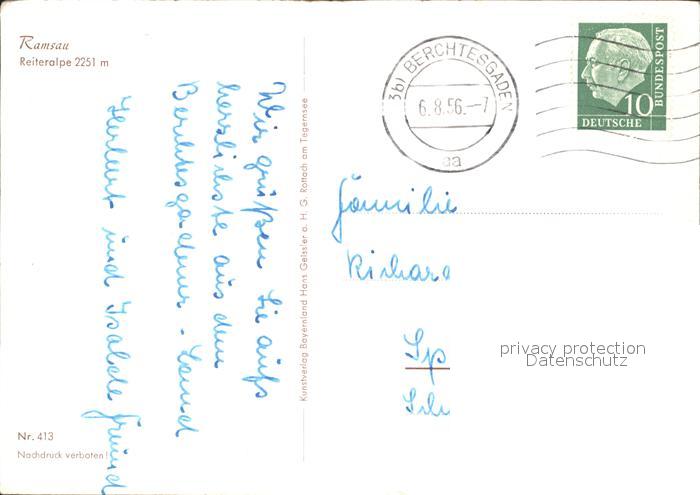 Ramsau
Reiteralpe 2251 m
(3b) BERCHTESGADEN
6.8.56.–7
aa
DEUTSCHE
BUNDESPOST
10
Wir grüßen Sie aufs
herzlichste aus dem
Berchtesgadener - Land
Herbert und Isolde Freund
Kunstverlag Bayernland Hans Geissler a. H. G. Rottach am Tegernsee
Familie
Richard
Sp
Sch
privacy protection
Datenschutz
Nr. 413
Nachdruck verboten!